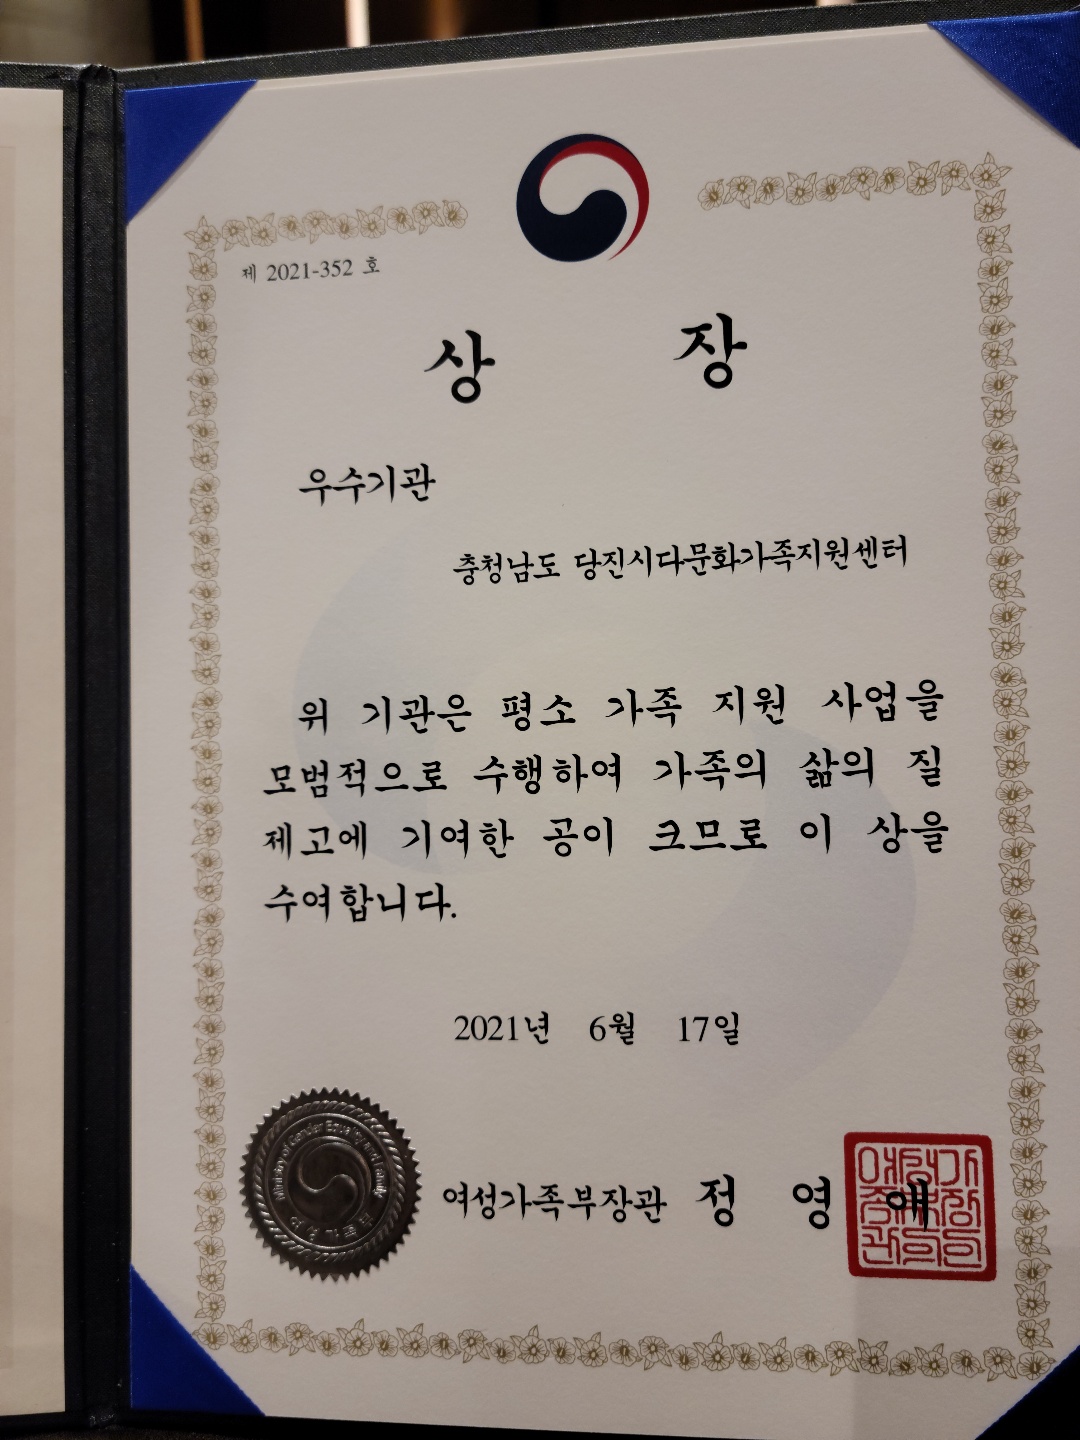 제 2021-352 호
상 장
우수기관
충청남도 당진시다문화가족지원센터
위 기관은 평소 가족 지원 사업을
모범적으로 수행하여 가족의 삶의 질
제고에 기여한 공이 크므로 이 상을
수여합니다.
2021년 6월 17일
Ministry of Gender Equality and Family
여성가족부
여성가족부장관 정 영 애